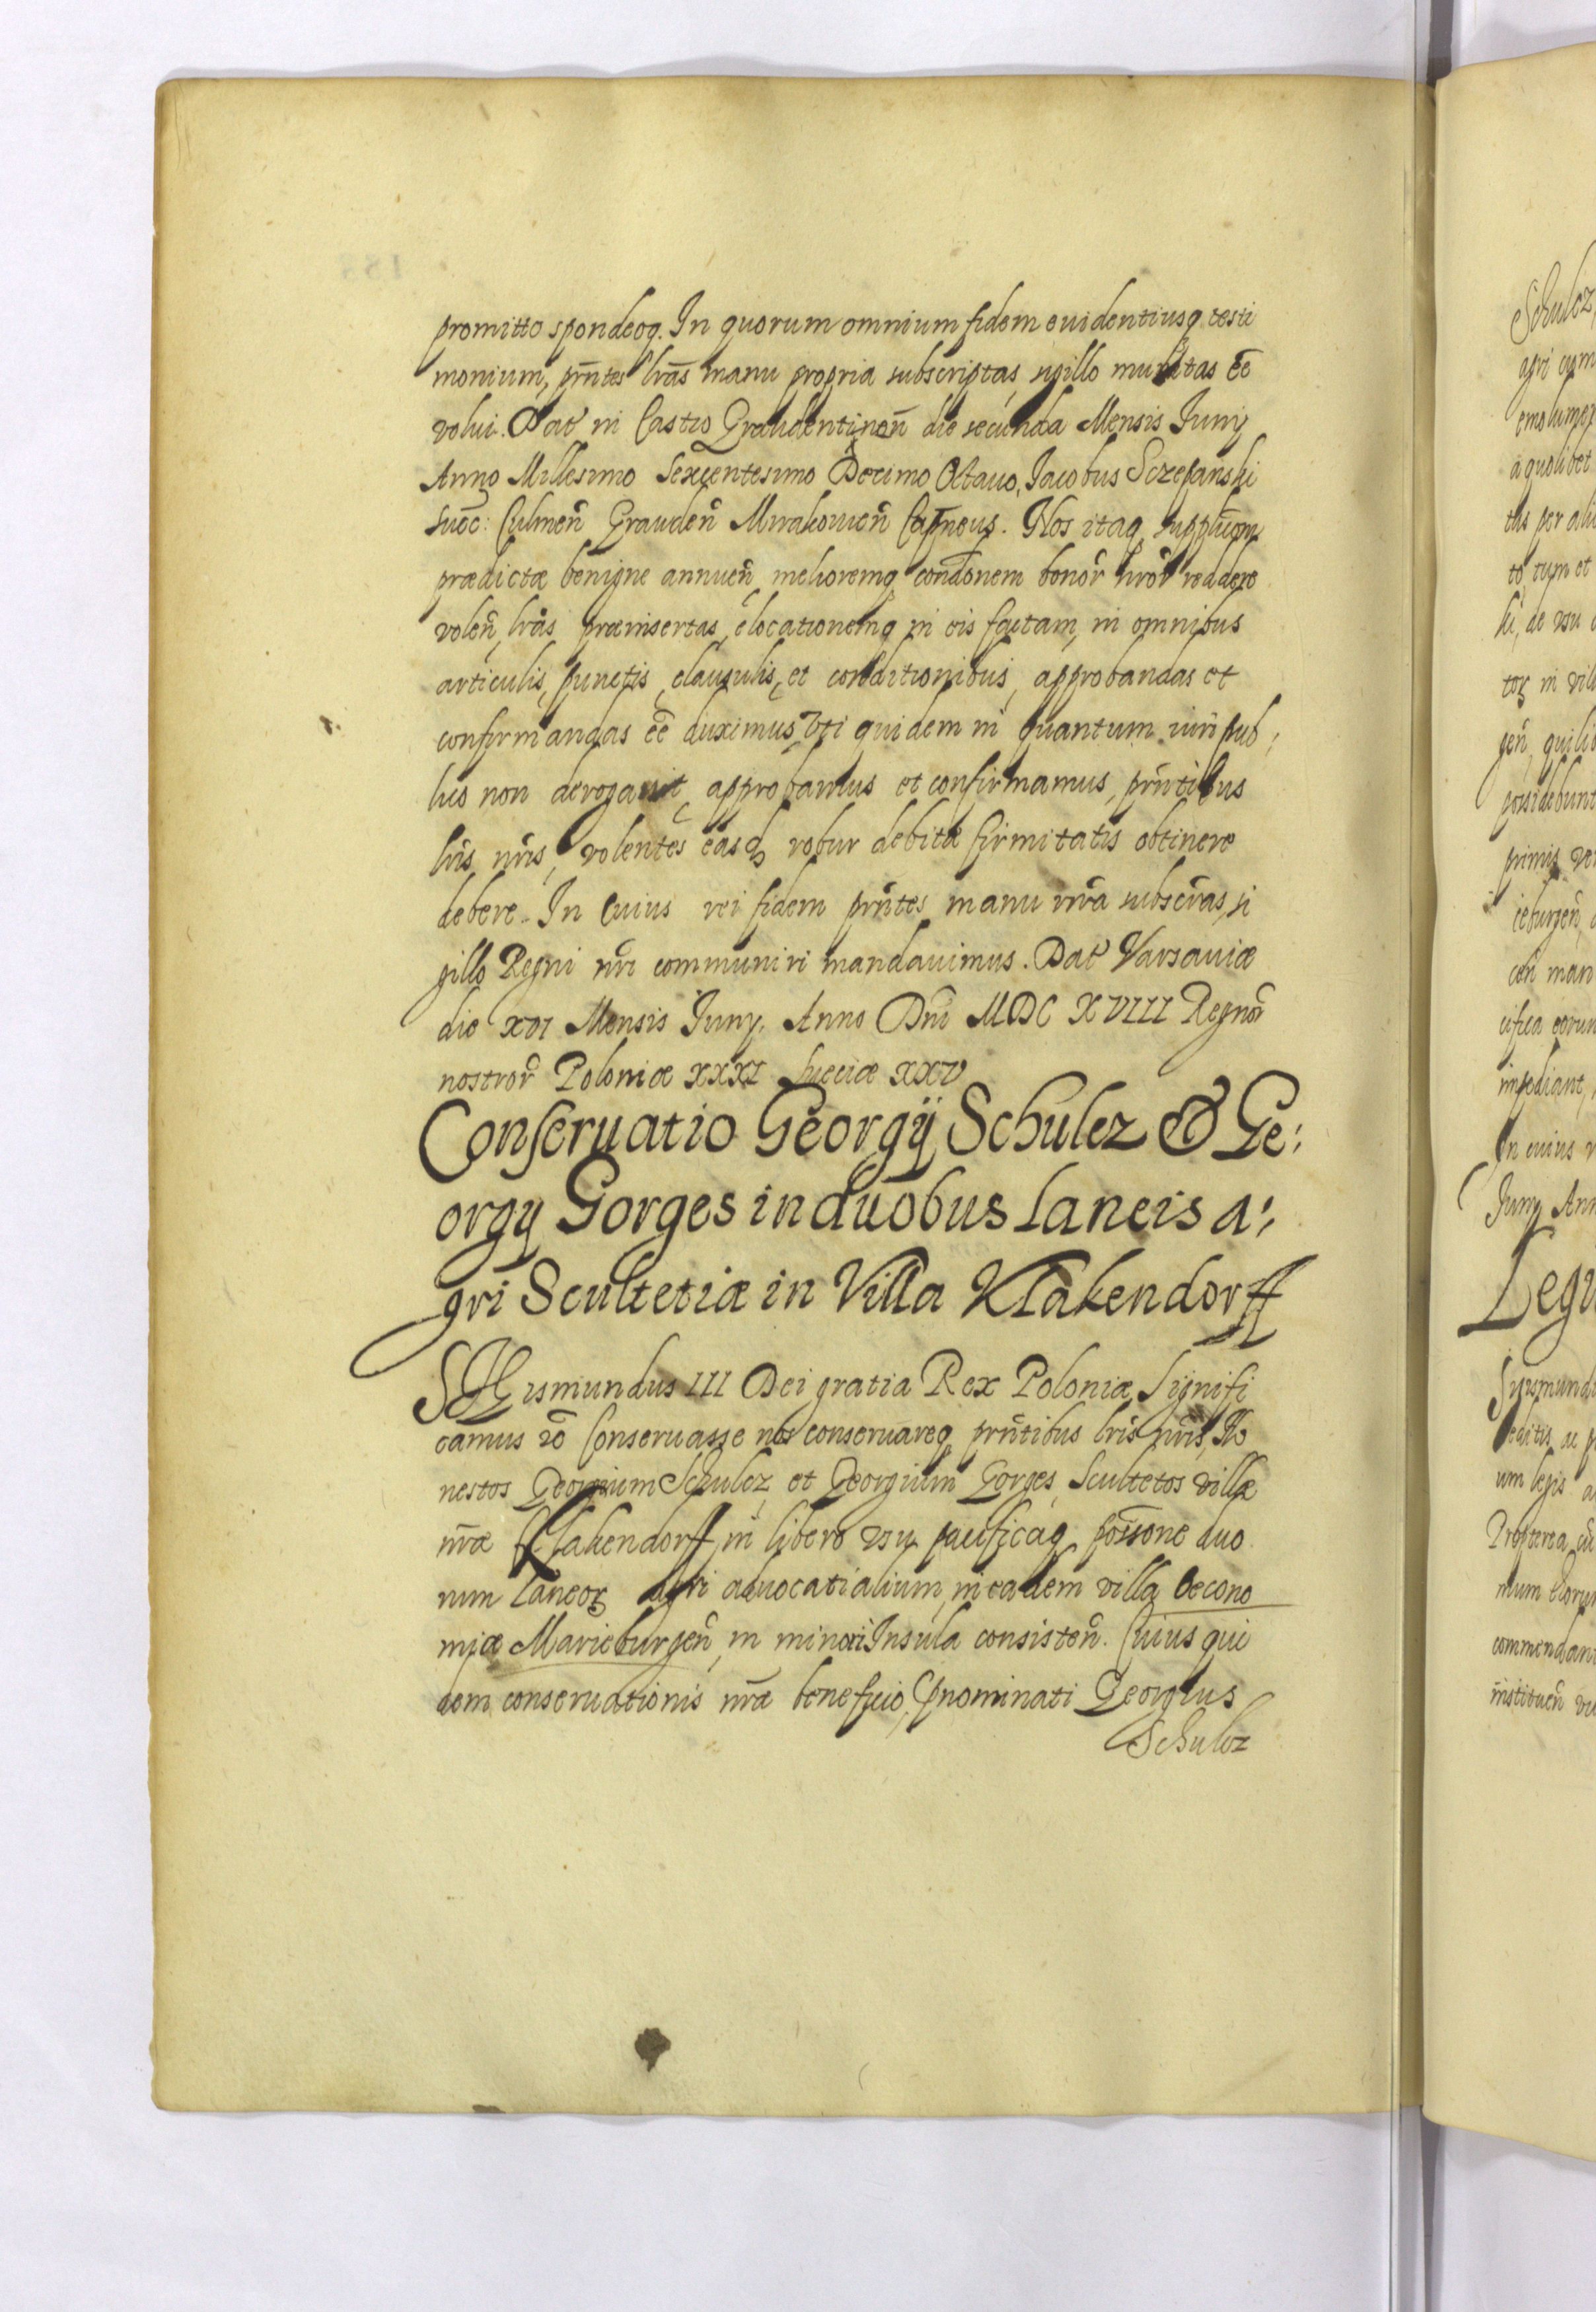 promitto spondeoq. In quorum omnium fidem euidentiusq testi
monium, prñtes lrãs manu propria subscriptas, sigillo munitas ẽẽ
volui. Dat in Castro Graudentineñ die secunda Mensis Iunij
Anno Millesimo Sexcentesimo Decimo Octauo, Iacobus Sczepanski
Succ: Culmeñ Graudeñ Mirakouieñ Capñeus. Nos itaq
prædictæ benigne annueñ, melioremq condõnem bonor̃ nror̃ reddere
voleñ, lrãs præinsertas, elocationemq in eis factam, in omnibus
articulis, punctis, clausulis, et conditionibus, approbandas et
confirmandas ẽẽ duximus, vti quidem in quantum iuri pub,
lico non derogauit, approbamus et confirmamus, prñtibus
lris nris, volentes easdẽ robur debitæ firmitatis obtinere
debere. In Cuius rei fidem prñtes manu nrã subscras, si
gillo Regni nri communiri mandauimus. Dat Varsauiæ
die XVI Mensis Iunij. Anno Dñi MDC XVIII Regnor̃
nostror̃ Poloniæ XXXI Sueciæ XXV
Conseruatio Georgij Schulcz & Ge:
orgy Gorges in duobus laneis a:,
gri Scultetiæ in Villa Klakendorff
Sigismundus III Dei gratia Rex Poloniæ, Signifi
camus &c Conseruasse nos conseruareq prñtibus lris nris, Ho
nestos Georgium Schulcz, et Georgium Gorges, Scultetos villæ
nræ Klakendorff, in libero vsu pacificaq possone duo
rum laneor agri aduocatialium, in eadem villa Oecono
miæ Marieburgeñ, in minori Insula consisteñ. Cuius qui
dem conseruationis nræ beneficio, prnominati Georgius
Schulcz
Schulcz
agri cum
a quolibet
to, tum et
ki, de vsu
tor in vil
possidebunt
impediant,
In cuius
Iunij Ann
Sigismund
um legis
commendan